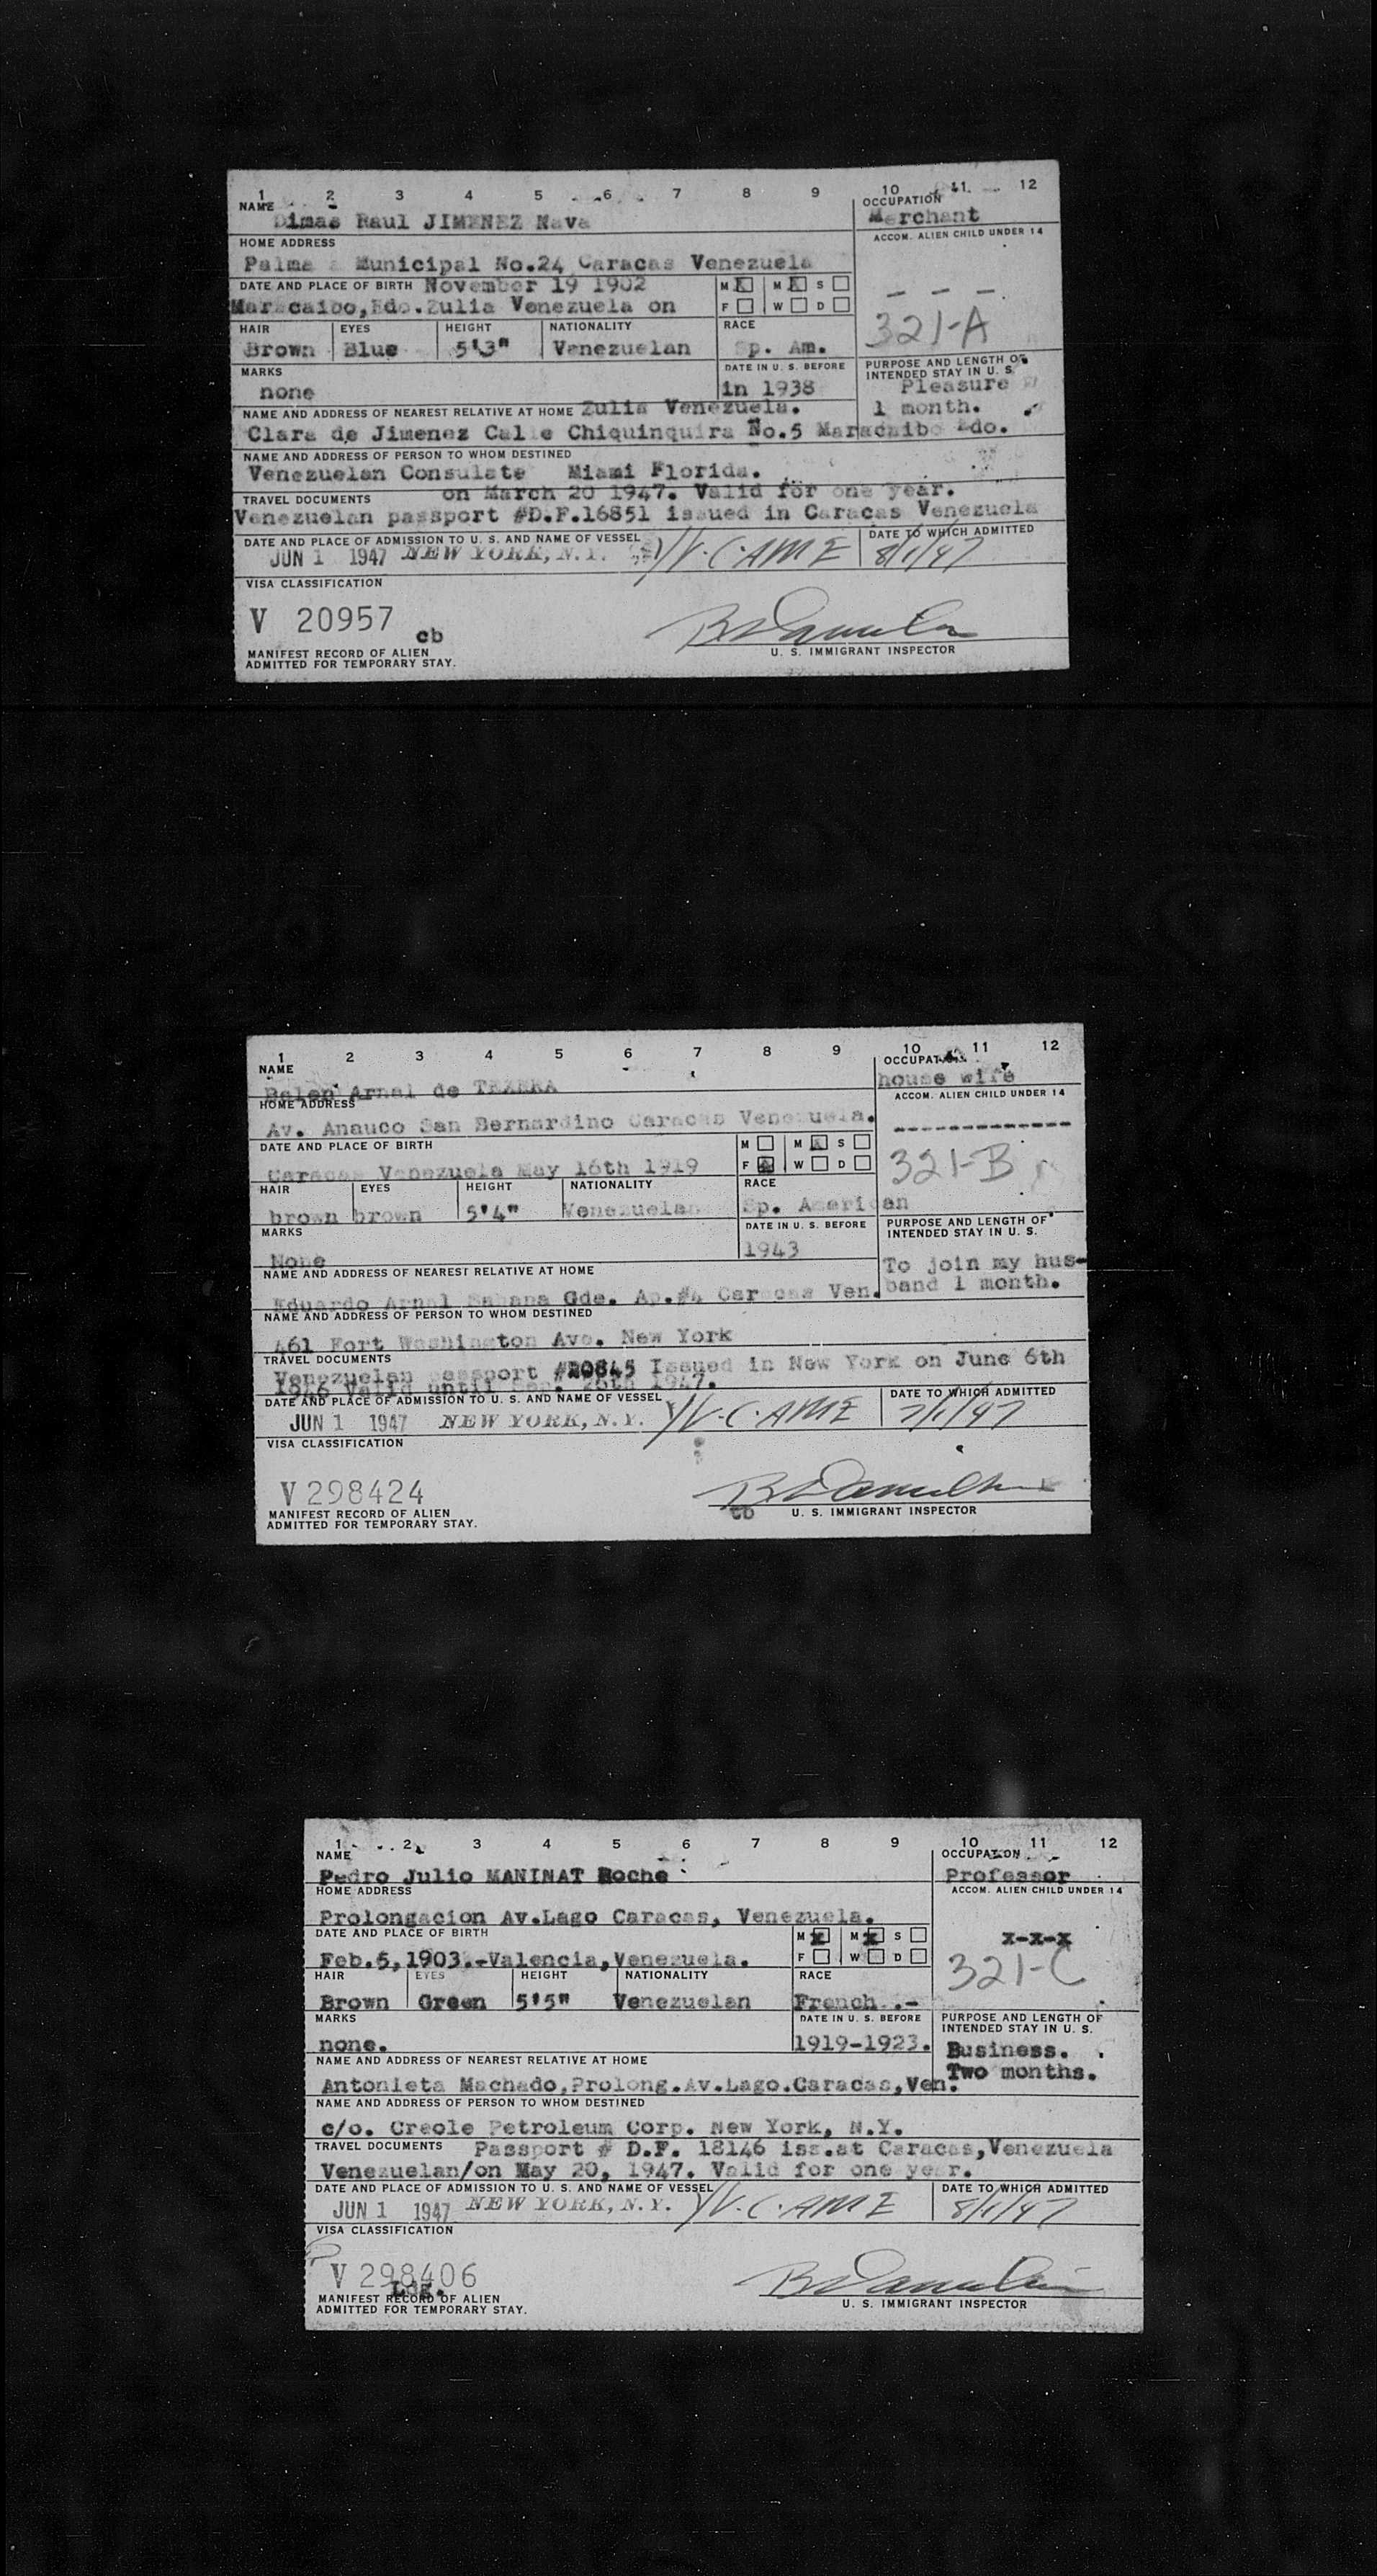 1 2 3 4 5 6 7 8 9 10 11 12
NAME OCCUPATION
Dimas Raul JIMENEZ Nava Merchant
HOME ADDRESS ACCOM. ALIEN CHILD UNDER 14
Palma a Municipal No.24 Caracas Venezuela
DATE AND PLACE OF BIRTH November 19 1902 M X M X S
Maracaibo, Edo. Zulia Venezuela on F W D - - -
321-A
HAIR EYES HEIGHT NATIONALITY RACE
Brown Blue 5'3" Venezuelan Sp. Am.
MARKS DATE IN U. S. BEFORE PURPOSE AND LENGTH OF INTENDED STAY IN U. S.
none in 1938 Pleasure
NAME AND ADDRESS OF NEAREST RELATIVE AT HOME Zulia Venezuela. 1 month.
Clara de Jimenez Calle Chiquinquira No.5 Maracaibo Edo.
NAME AND ADDRESS OF PERSON TO WHOM DESTINED
Venezuelan Consulate Miami Florida.
TRAVEL DOCUMENTS on March 20 1947. Valid for one year.
Venezuelan passport #D.F.16851 issued in Caracas Venezuela
DATE AND PLACE OF ADMISSION TO U. S. AND NAME OF VESSEL DATE TO WHICH ADMITTED
JUN 1 1947 NEW YORK, N.Y. V.C. AME 8/1/47
VISA CLASSIFICATION
V 20957
cb
MANIFEST RECORD OF ALIEN
ADMITTED FOR TEMPORARY STAY.
U. S. IMMIGRANT INSPECTOR
1 2 3 4 5 6 7 8 9 10 11 12
NAME OCCUPATION
Belen Arnal de TEXERA house wife
HOME ADDRESS ACCOM. ALIEN CHILD UNDER 14
Av. Anauco San Bernardino Caracas Venezuela. -------------
DATE AND PLACE OF BIRTH M M X S
Caracas Venezuela May 16th 1919 F X W D
321-B
HAIR EYES HEIGHT NATIONALITY RACE
brown brown 5'4" Venezuelan Sp. American
MARKS DATE IN U. S. BEFORE PURPOSE AND LENGTH OF INTENDED STAY IN U. S.
None 1943 To join my hus-
NAME AND ADDRESS OF NEAREST RELATIVE AT HOME band 1 month.
Eduardo Arnal Sabana Gde. Ap.#4 Caracas Ven.
NAME AND ADDRESS OF PERSON TO WHOM DESTINED
461 Fort Washington Ave. New York
TRAVEL DOCUMENTS
Venezuelan passport #20845 Issued in New York on June 6th
1946 Valid until 1947.
DATE AND PLACE OF ADMISSION TO U. S. AND NAME OF VESSEL DATE TO WHICH ADMITTED
JUN 1 1947 NEW YORK, N.Y. V.C. AME 7/1/47
VISA CLASSIFICATION
V 298424
MANIFEST RECORD OF ALIEN
ADMITTED FOR TEMPORARY STAY.
cb U. S. IMMIGRANT INSPECTOR
1 2 3 4 5 6 7 8 9 10 11 12
NAME OCCUPATION
Pedro Julio MANINAT Roche Professor
HOME ADDRESS ACCOM. ALIEN CHILD UNDER 14
Prolongacion Av.Lago Caracas, Venezuela.
DATE AND PLACE OF BIRTH M X M X S x-x-x
Feb.5,1903.-Valencia,Venezuela. F W D
321-C
HAIR EYES HEIGHT NATIONALITY RACE
Brown Green 5'5" Venezuelan French .-
MARKS DATE IN U. S. BEFORE PURPOSE AND LENGTH OF INTENDED STAY IN U. S.
none. 1919-1923. Business.
NAME AND ADDRESS OF NEAREST RELATIVE AT HOME Two months.
Antonieta Machado,Prolong.Av.Lago.Caracas,Ven.
NAME AND ADDRESS OF PERSON TO WHOM DESTINED
c/o. Creole Petroleum Corp. New York, N.Y.
TRAVEL DOCUMENTS Passport # D.F. 18146 iss.at Caracas,Venezuela
Venezuelan/on May 20, 1947. Valid for one year.
DATE AND PLACE OF ADMISSION TO U. S. AND NAME OF VESSEL DATE TO WHICH ADMITTED
JUN 1 1947 NEW YORK, N.Y. V.C. AME 8/1/47
VISA CLASSIFICATION
V 298406
MANIFEST RECORD OF ALIEN
ADMITTED FOR TEMPORARY STAY.
U. S. IMMIGRANT INSPECTOR